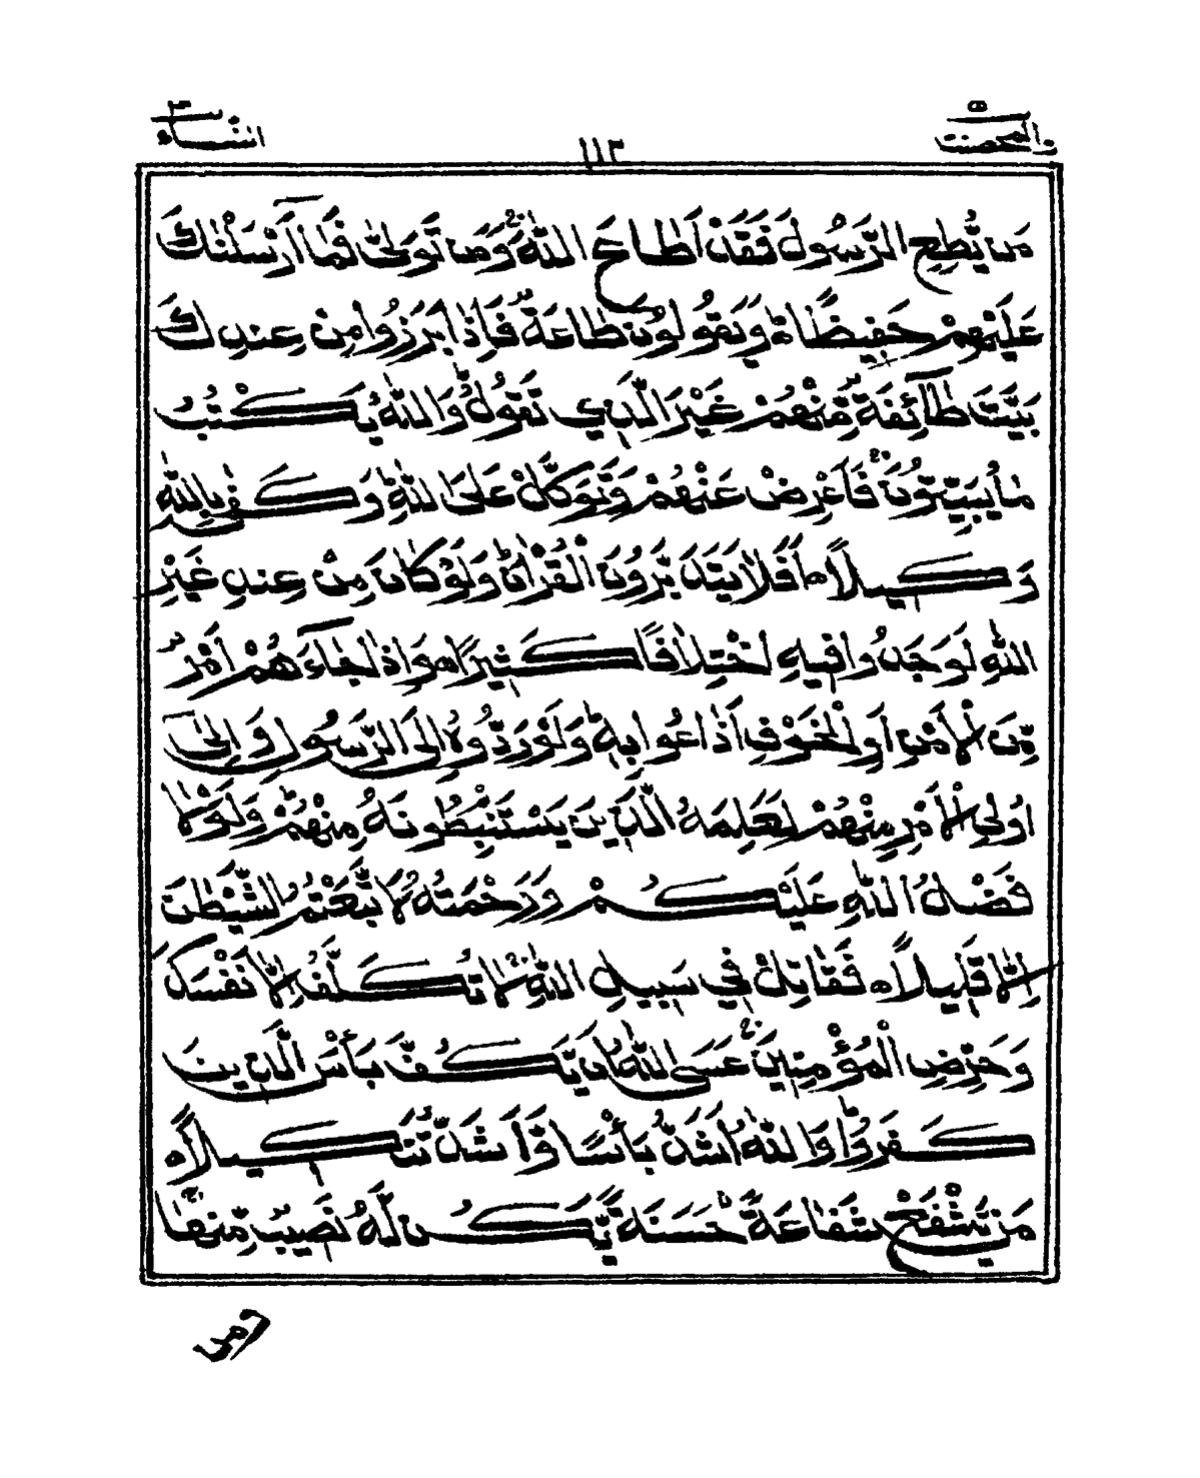 والمحصنت ٥
١١٣
النساء ٣
مَنْ يُّطِعِ الرَّسُوْلَ فَقَدْ اَطَاعَ اللّٰهَ ۚ وَمَنْ تَوَلّٰى فَمَاۤ اَرْسَلْنٰكَ
عَلَيْهِمْ حَفِيْظًا ؕ وَيَقُوْلُوْنَ طَاعَةٌ فَاِذَا بَرَزُوْا مِنْ عِنْدِكَ
بَيَّتَ طَآئِفَةٌ مِّنْهُمْ غَيْرَ الَّذِيْ تَقُوْلُ ؕ وَاللّٰهُ يَكْتُبُ
مَا يُبَيِّتُوْنَ ۚ فَاَعْرِضْ عَنْهُمْ وَتَوَكَّلْ عَلَى اللّٰهِ ؕ وَكَفٰى بِاللّٰهِ
وَكِيْلًا ۝ اَفَلَا يَتَدَبَّرُوْنَ الْقُرْاٰنَ ؕ وَلَوْ كَانَ مِنْ عِنْدِ غَيْرِ
اللّٰهِ لَوَجَدُوْا فِيْهِ اخْتِلَافًا كَثِيْرًا ۝ وَاِذَا جَآءَهُمْ اَمْرٌ
مِّنَ الْاَمْنِ اَوِ الْخَوْفِ اَذَاعُوْا بِهٖ ؕ وَلَوْ رَدُّوْهُ اِلَى الرَّسُوْلِ وَاِلٰۤى
اُولِي الْاَمْرِ مِنْهُمْ لَعَلِمَهُ الَّذِيْنَ يَسْتَنْۢبِطُوْنَهٗ مِنْهُمْ ؕ وَلَوْلَا
فَضْلُ اللّٰهِ عَلَيْكُمْ وَرَحْمَتُهٗ لَاتَّبَعْتُمُ الشَّيْطٰنَ
اِلَّا قَلِيْلًا ۝ فَقَاتِلْ فِيْ سَبِيْلِ اللّٰهِ ۚ لَا تُكَلَّفُ اِلَّا نَفْسَكَ
وَحَرِّضِ الْمُؤْمِنِيْنَ ۚ عَسَى اللّٰهُ اَنْ يَّكُفَّ بَاْسَ الَّذِيْنَ
كَفَرُوْا ؕ وَاللّٰهُ اَشَدُّ بَاْسًا وَّاَشَدُّ تَنْكِيْلًا ۝
مَنْ يَّشْفَعْ شَفَاعَةً حَسَنَةً يَّكُنْ لَّهٗ نَصِيْبٌ مِّنْهَا ۚ
ومن